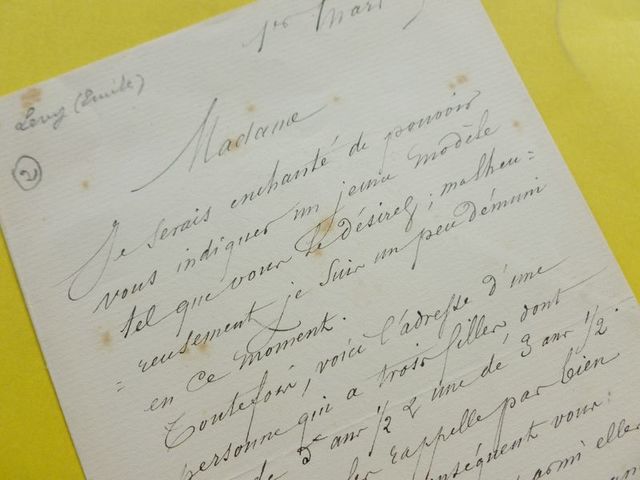 1er Mars
Levy (Emile)
2
Madame
Je serais enchanté de pouvoir
vous indiquer un jeune modèle
tel que vous le désirez; malheu=
=reusement je suis un peu démuni
en ce moment.
Toutefois, voici l'adresse d'une
personne qui a trois filles, dont
de 5 ans 1/2 & une de 3 ans 1/2.
rappelle pas bien
conséquent vous
parmi elles